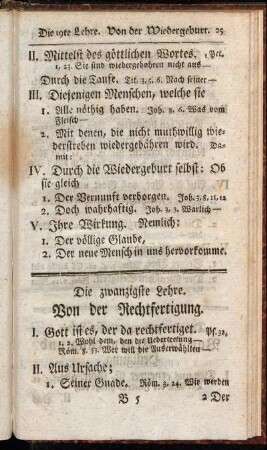 Die 19te Lehre. Von der Wiedergeburt. 25
II. Mittelst des göttlichen Wortes. 1 Pet.
1, 23. Sie sind wiedergebohren nicht aus—
Durch die Taufe. Tit. 3, 5. 6. Nach seiner—
III. Diejenigen Menschen, welche sie
1. Alle nöthig haben. Joh. 3. 6. Was vom
Fleisch—
2. Mit denen, die nicht muthwillig wie-
derstreben wiedergebähren wird. Da-
mit:
IV. Durch die Wiedergeburt selbst: Ob
sie gleich
1. Der Vernunft verborgen. Joh. 3, 8. 11, 12
2. Doch wahrhaftig. Joh. 3. 3. Warlich—
V. Ihre Wirkung. Nemlich:
1. Der völlige Glaube,
2. Der neue Mensch in uns hervorkomme.
Die zwanzigste Lehre.
Von der Rechtfertigung.
I. Gott ist es, der da rechtfertiget. Ps. 32,
1. 2. Wohl dem, den die Uebertretung—
Röm. 8. 33. Wer will die Auserwählten—
II. Aus Ursache;
1. Seiner Gnade. Röm. 3. 24. Wir werden
B 5 2 Der